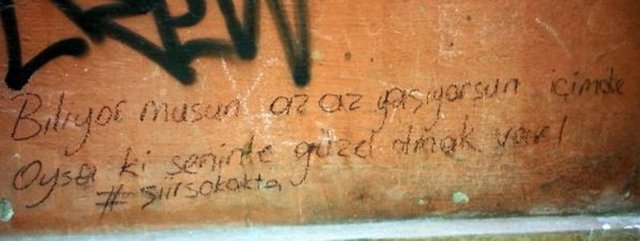 CREW
Biliyor musun az az yaşıyorsun içimde
Oysa ki seninle güzel olmak var
#şiirsokakta